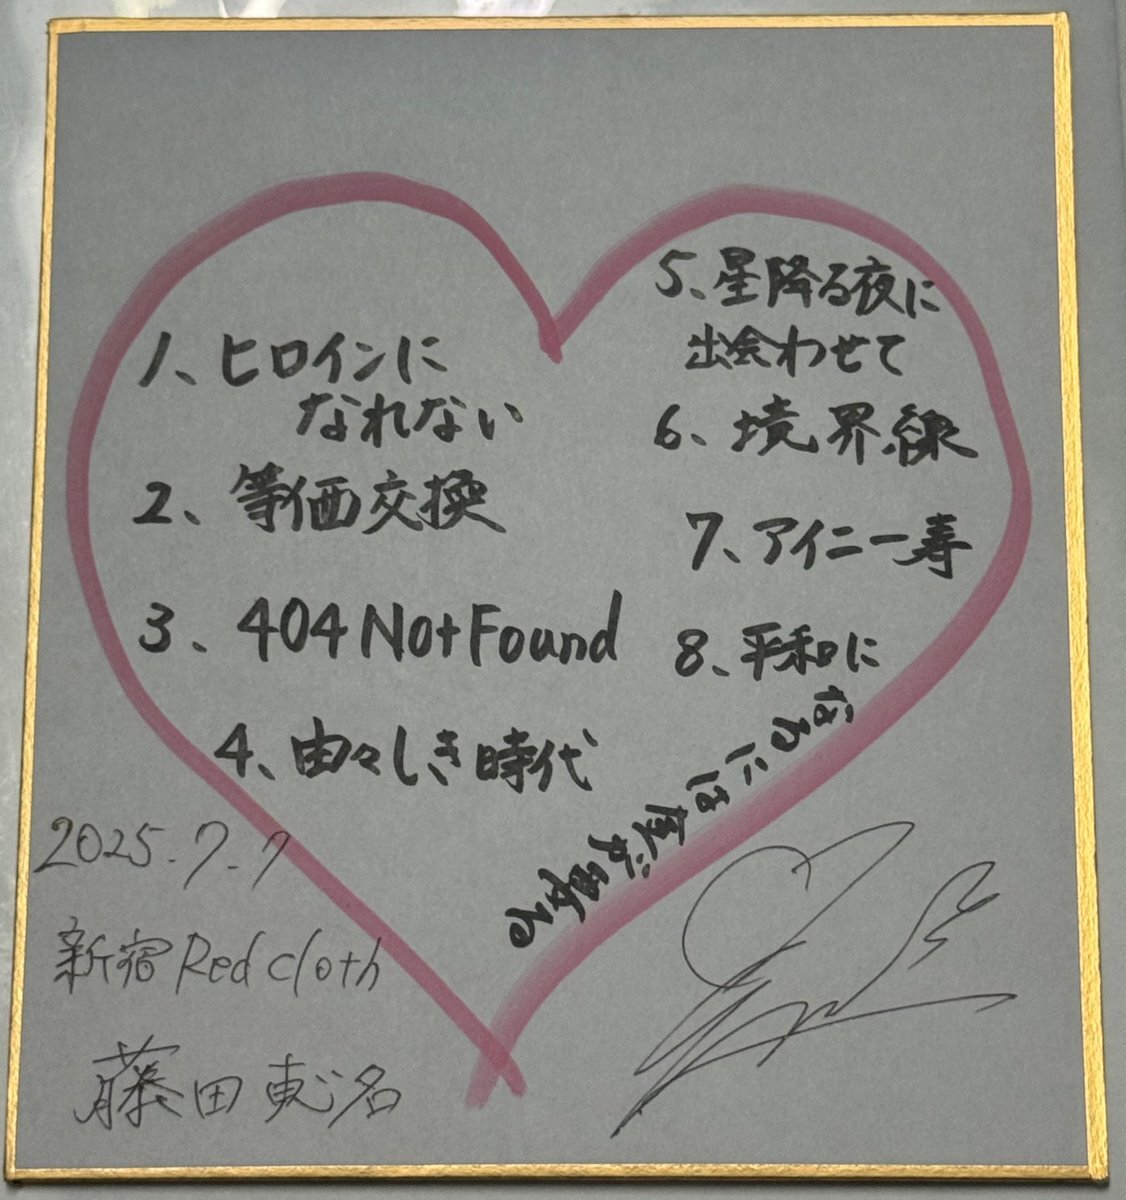 1、ヒロインに
なれない
2、等価交換
3、404 Not Found
4、由々しき時代
5、星降る夜に
出会わせて
6、境界線
7、アイニー寿
8、平和に
なるには度が
2025.7.7
新宿 Red cloth
藤田恵名